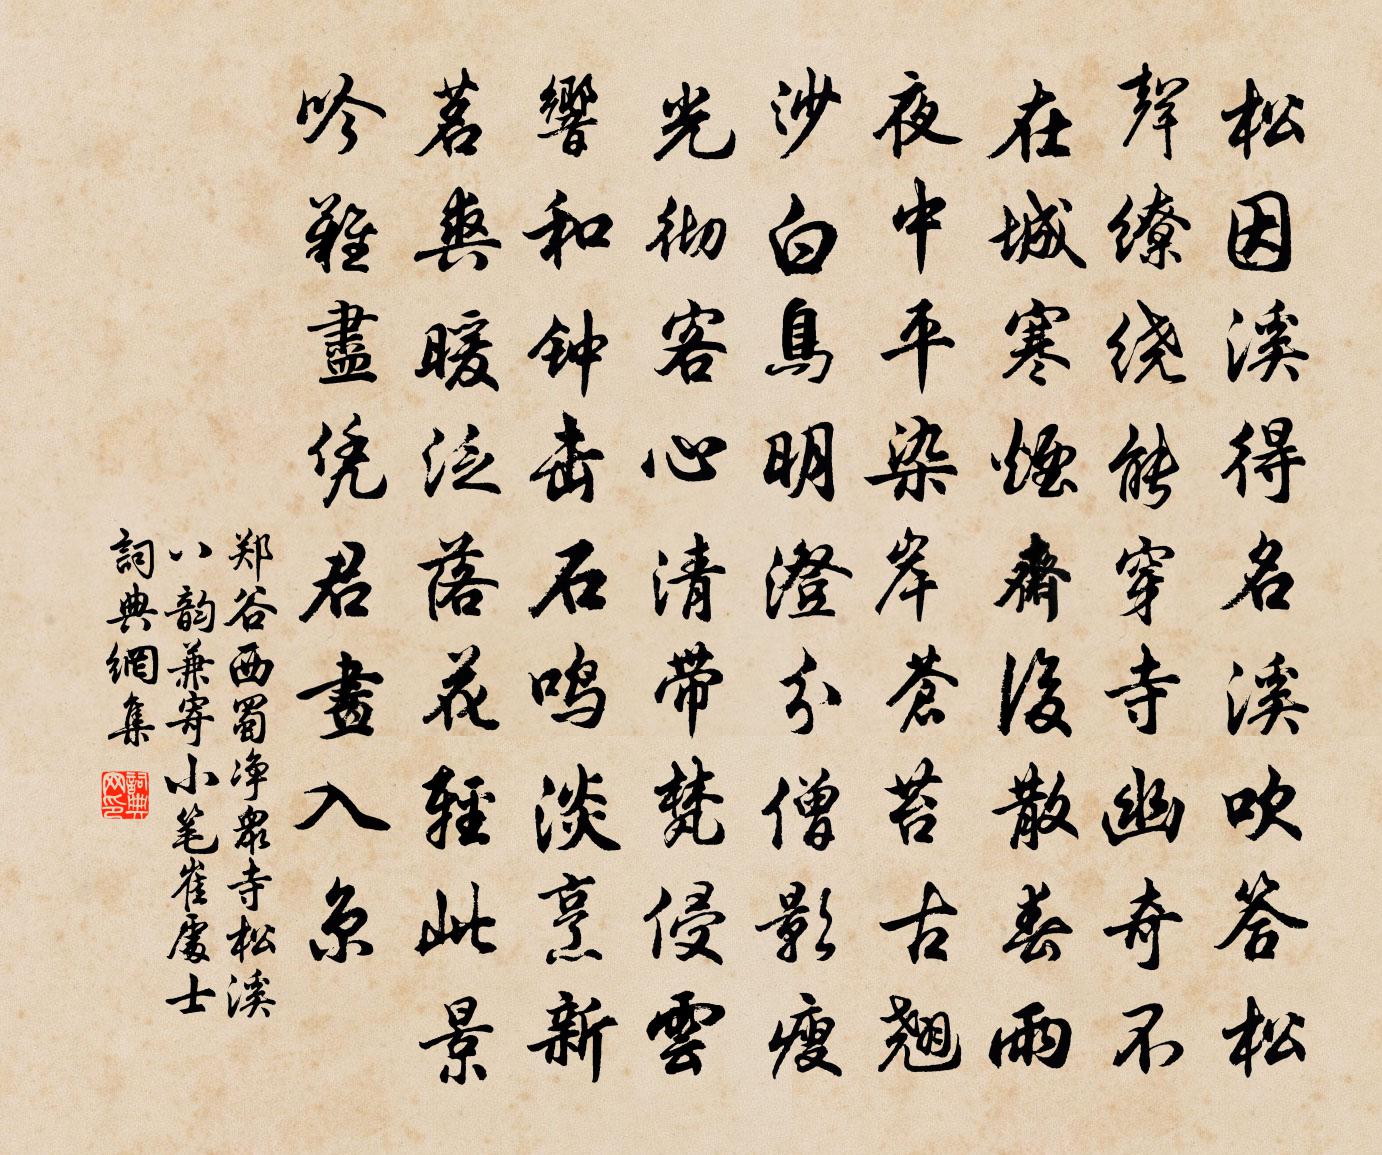 松因溪得名溪吹答松
聲繚绕能穿寺幽奇不
在城寒煙齋後散春雨
夜中平染岸蒼苔古翘
沙白鳥明澄分僧影瘦
光彻客心清带梵侵雲
響和钟击石鸣淡烹新
茗爽暖泛落花輕此景
吟難盡凭君畫入京
郑谷西蜀净衆寺松溪
八韵兼寄小笔崔處士
詞典網集
詞典网印